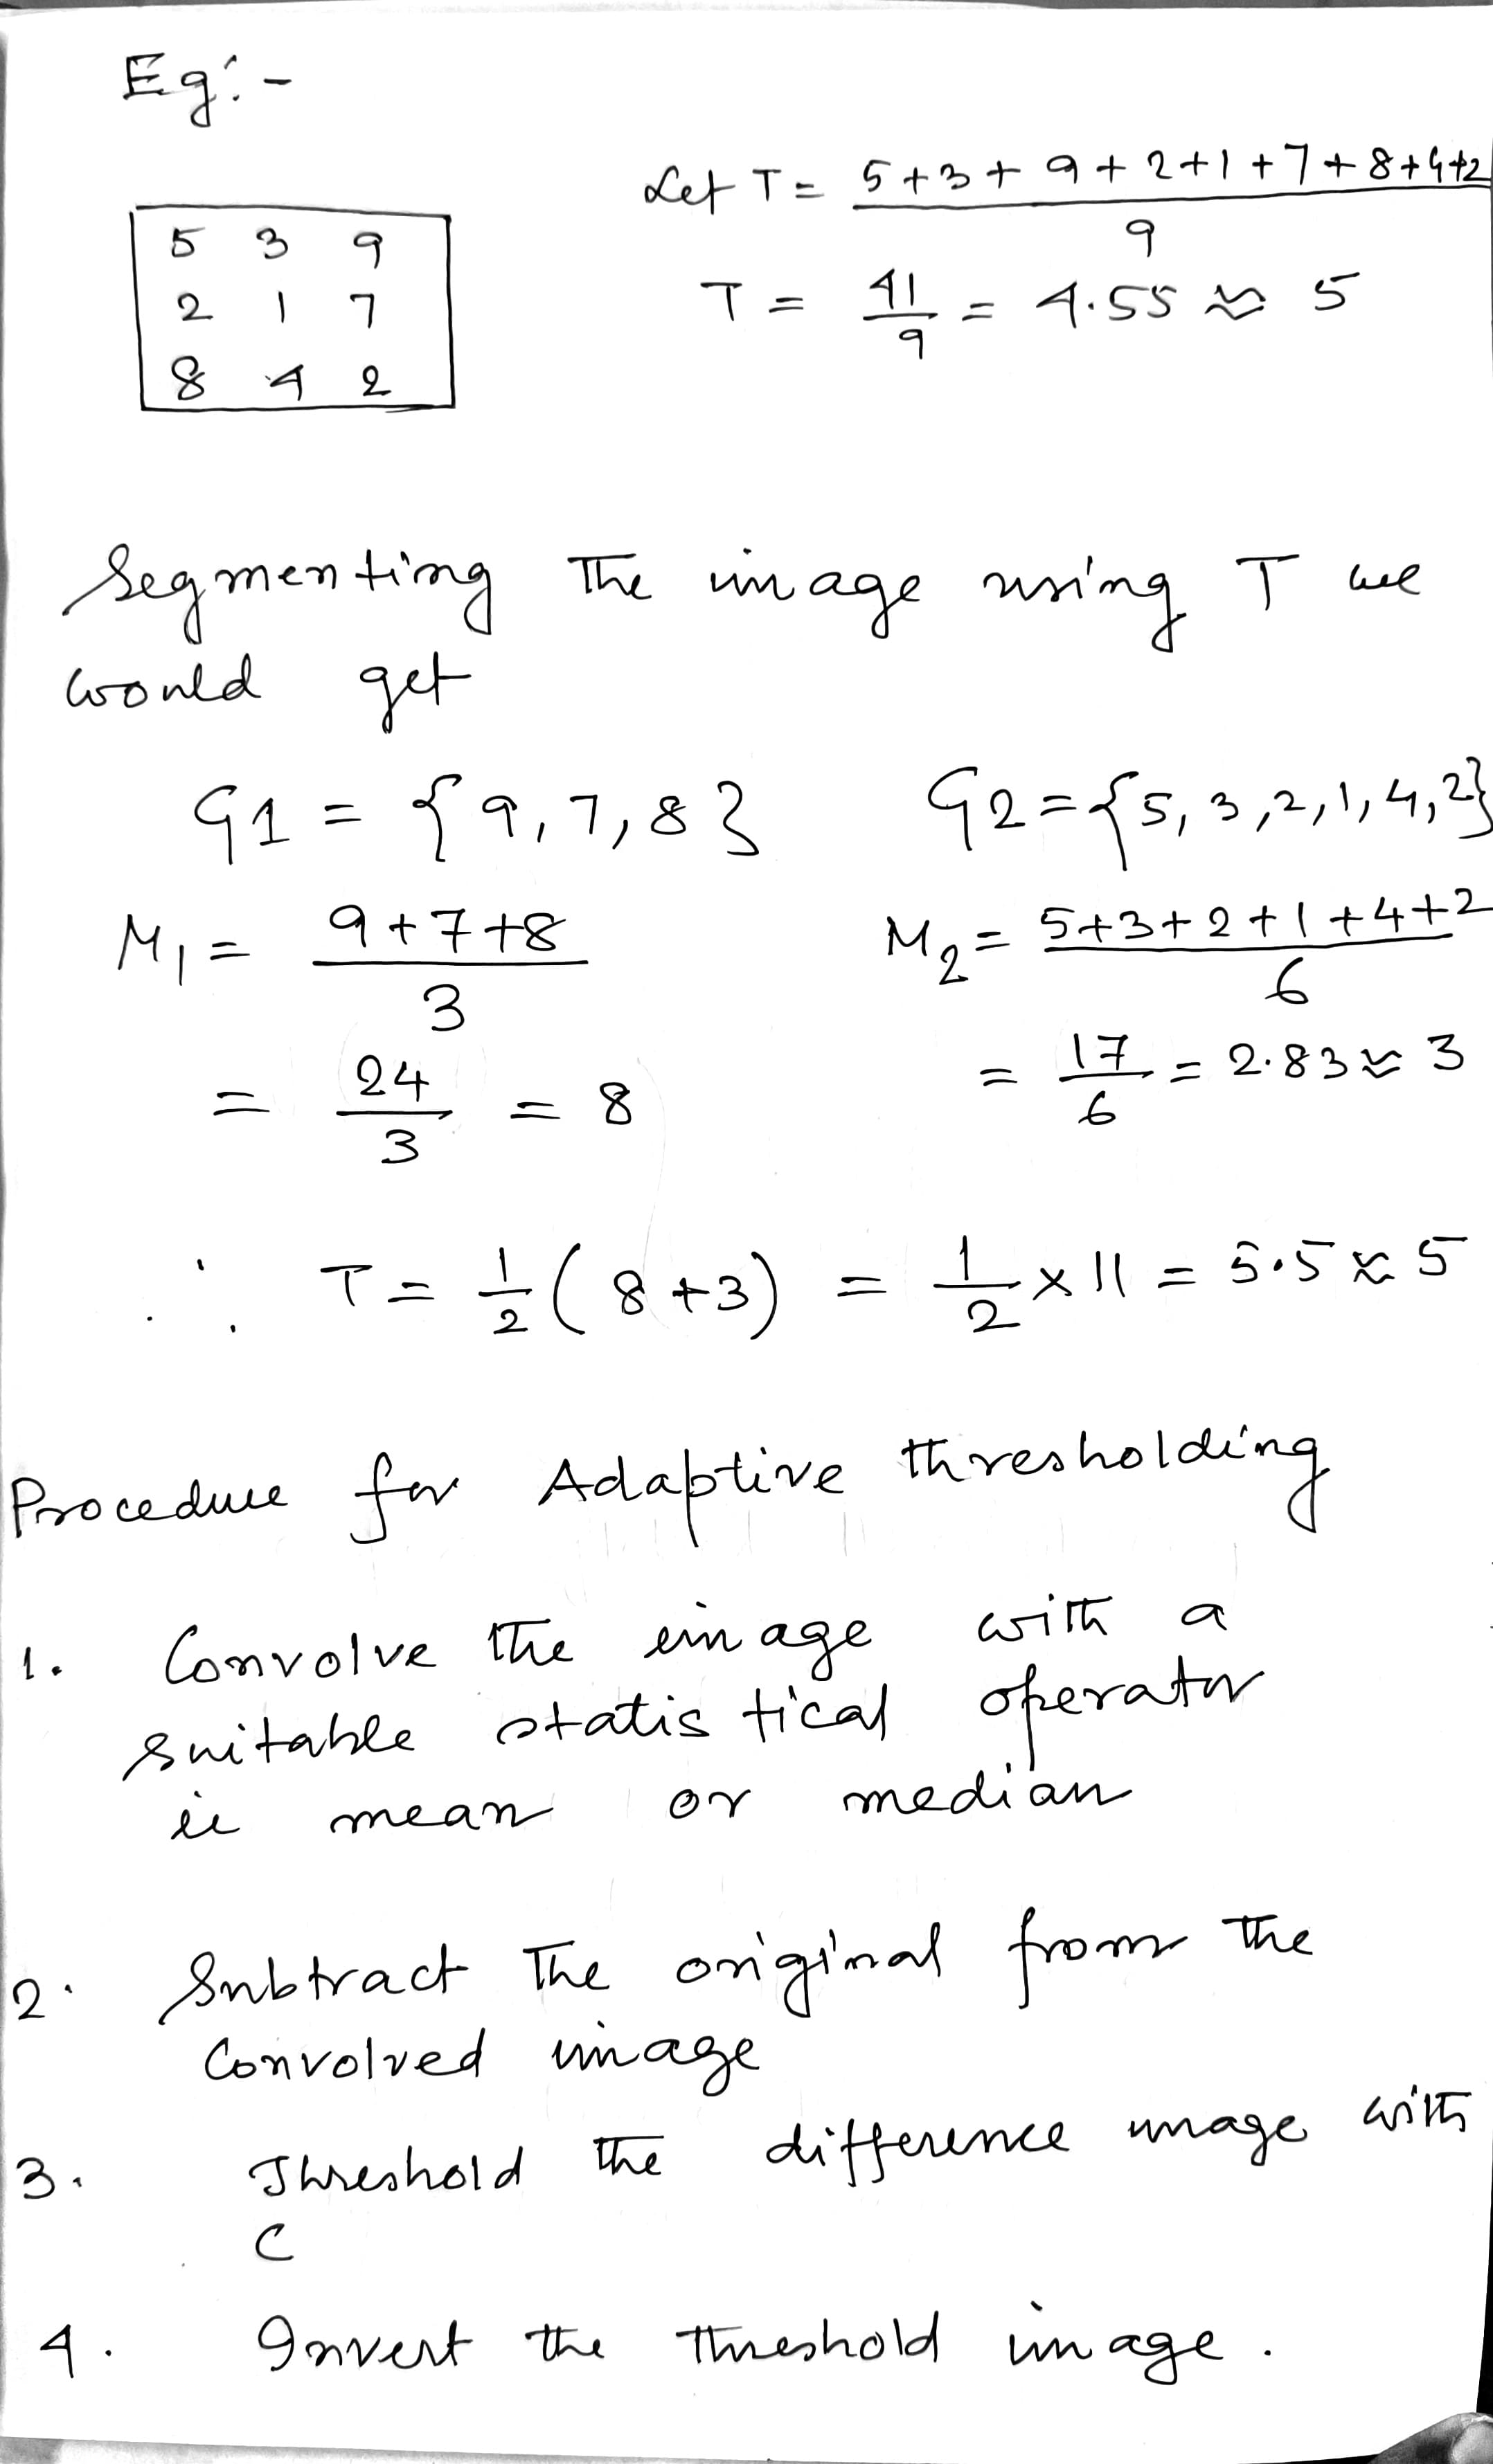 Eg:-
Let T = 5+3+9+2+1+7+8+4+2
9
5 3 9
2 1 7
8 4 2
T = 41/9 = 4.55 ≈ 5
Segmenting the image using T we
would get
G1 = {9,7,8} G2 = {5,3,2,1,4,2}
M1 = 9+7+8 M2 = 5+3+2+1+4+2
3 6
= 24/3 = 8 = 17/6 = 2.83 ≈ 3
∴ T = 1/2 (8+3) = 1/2 x 11 = 5.5 ≈ 5
Procedure for Adaptive thresholding
1. Convolve the image with a
suitable statistical operator
ie mean or median
2. Subtract the original from the
Convolved image
3. Threshold the difference image with
C
4. Invert the threshold image.